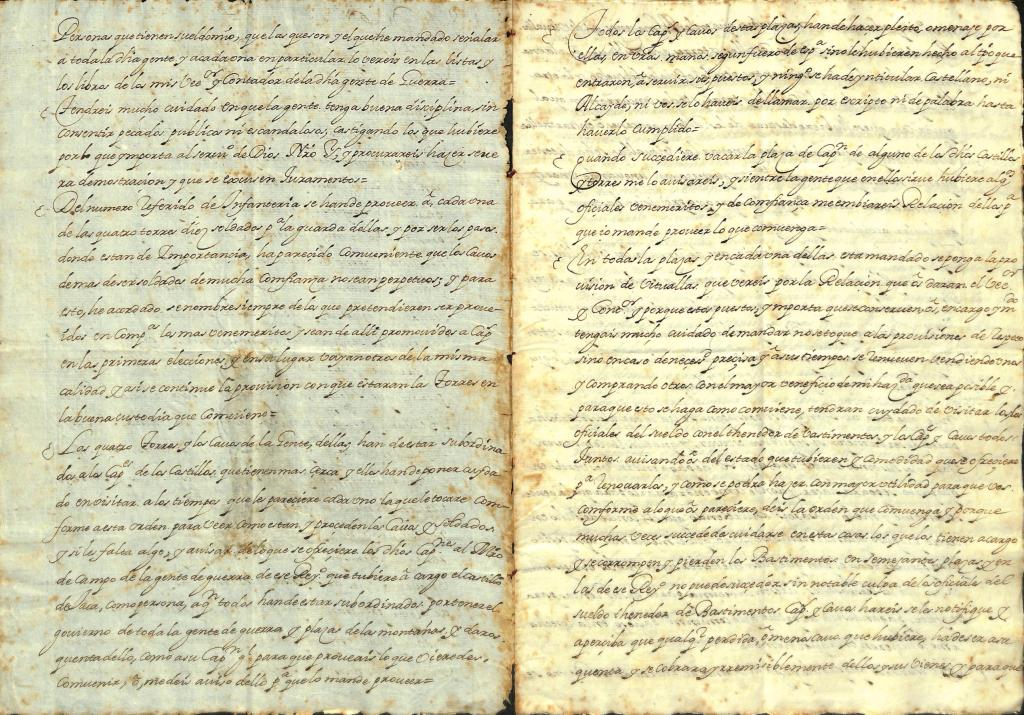 Personas que tienen sueldo mio, que las que son, y el que he mandado señalar
a toda la dha gente, y a cada una en particular lo vereis en las listas y
los libros de los mis Vee.res y Contador de la dha gente de Guerra=
Tendreis mucho cuidado en que la gente tenga buena disciplina, sin
Consentir pecados publicos ni escandalosos, castigando los que hubiere
por lo que ymporta al servi.o de Dios Nro S.r, y procurareis hazer seve
ra demostracion y que se escusen Juramentos=
Del numero referido de Infanteria se han de proveer a cada una
de las quatro torres diez soldados p.a la guarda dellas, y por ser los pasos
donde estan de Importancia, ha parecido Conveniente que los Cavos
demas de ser soldados de mucha Confianza no sean perpetuos; y para
esto, he acordado se nombre siempre de los que pretendieren ser provey
dos en Comp.as los mas venemeritos, y sean de alli promovidos a Cap.es
en las primeras elecciones, y en su lugar vayan otros de la misma
calidad, y asi se continue la provision con que estaran las Torres en
la buena custodia que Conviene=
Las quatro torres, y los Cavos de la Gente dellas, han de estar subordina
dos a los Cap.es de los Castillos, que tienen mas cerca, y ellos han de poner cuyda
do en visitar a los tiempos que les pareciere cada uno la que le tocare Con
forme a esta orden para veer como estan, y proceden los Cavos, y soldados
y si les falta algo, y avisar de lo que se ofreciere los dhos Cap.nes al Mro
de Campo de la gente de guerra de ese Rey.o que tubiere a cargo el castillo
de Jaca, como persona, a q.n todos han de estar subordinados por tener el
govierno de toda la gente de guerra, y plazas de las montañas, y daros
quenta dello, como a su Cap.n G.l para que proveais lo que vieredes
Convenir, o, me deis aviso dello p.a que lo mande proveer=
Todos los Cap.es y Cavos destas plazas, han de hacer pleito omenaje por
ellas, en vras manos, segun fuero de esp.a si no le hubieren hecho al tpo que
entraron, a servir sus puestos, y ning.o se ha de yntitular Castellano, ni
Alcayde, ni vos se lo haveis de llamar, por escripto ni de palabra hasta
haverlo cumplido=
quando succediere vacar la plaza de Cap.n de alguno de los dhos Castillos
y torres me lo avisareis, y si entre la gente que en ellos sirve hubiere alg.s
oficiales venemeritos, y de Confiança me embiareis Relacion dellos p.a
que io mande proveer lo que convenga=
En todas las plazas, y en cada una dellas esta mandado se ponga la pro
vision de Vituallas que vereis por la Relacion que os daran el Vee.or
y Con.or, y porque estan puestas, y importa que se conserven os encargo y m.do
tengais mucho cuidado de mandar no se toque a las provisiones de respeto
sino en caso de neces.d precisa, y a sus tiempos se renueven vendiendo unos
y comprando otros con el mayor veneficio de mi haz.da que sea posible y
para que esto se haga como conviene, tendran cuydado de visitar los los
oficiales del sueldo con el thenedor de vastimentos, y los Cap.es y Cavos todos
Juntos avisandoos del estado que tubieren y Comodidad que se ofreciere
p.a renovarlos, y como se podra hazer, con mayor utilidad para que vos
conforme a lo que os pareciere, deis la orden que convenga, y porque
muchas veces succede descuidarse en estas cosas los que los tienen a cargo
y se corrompen, y pierden los Bastimentos en semejantes plazas, y en
las de ese Rey.o no puede suceder, sin notable culpa de los oficiales del
sueldo thenedor de Bastimentos Cap.es y Cavos hareis se les notifique y
aperciba que qualq.r perdida, o menoscavo que hubiere, ha de ser a su
quenta, y se cobrara yrremisiblemente dellos y sus vienes, y para que